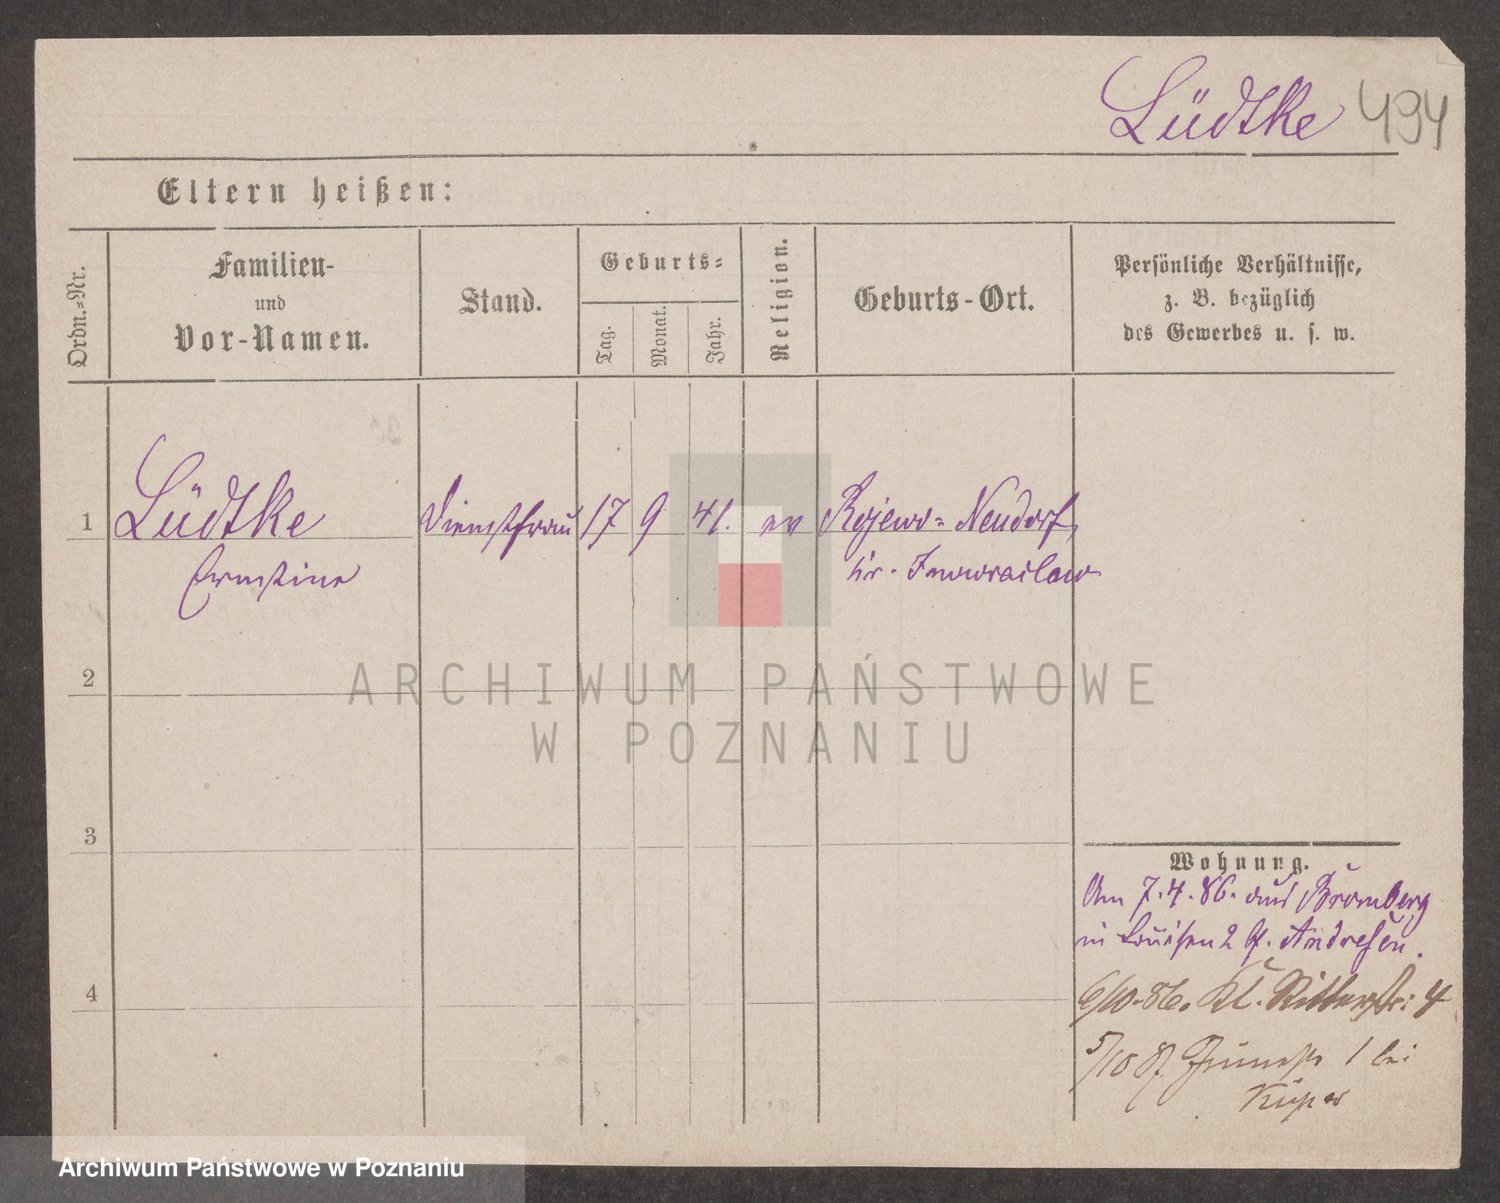 Lüdtke 494
Eltern heißen:
Ordn.-Nr.
Familien-
und
Vor-Namen.
Stand.
Geburts-
Tag.
Monat.
Jahr.
Religion.
Geburts-Ort.
Persönliche Verhältnisse,
z. B. bezüglich
des Gewerbes u. s. w.
1 Lüdtke Dienstfrau 17 9 41. ev Rojewo-Neudorf,
Ernstine Kr. Inowraclaw
2
3
4
Wohnung.
Am 7.4.86. aus Bromberg
in Louisen 2 b. Andresen.
6/10.86. Kl. Ritterstr: 4
5/10 87. 1 bei
ARCHIWUM PAŃSTWOWE
W POZNANIU
Archiwum Państwowe w Poznaniu